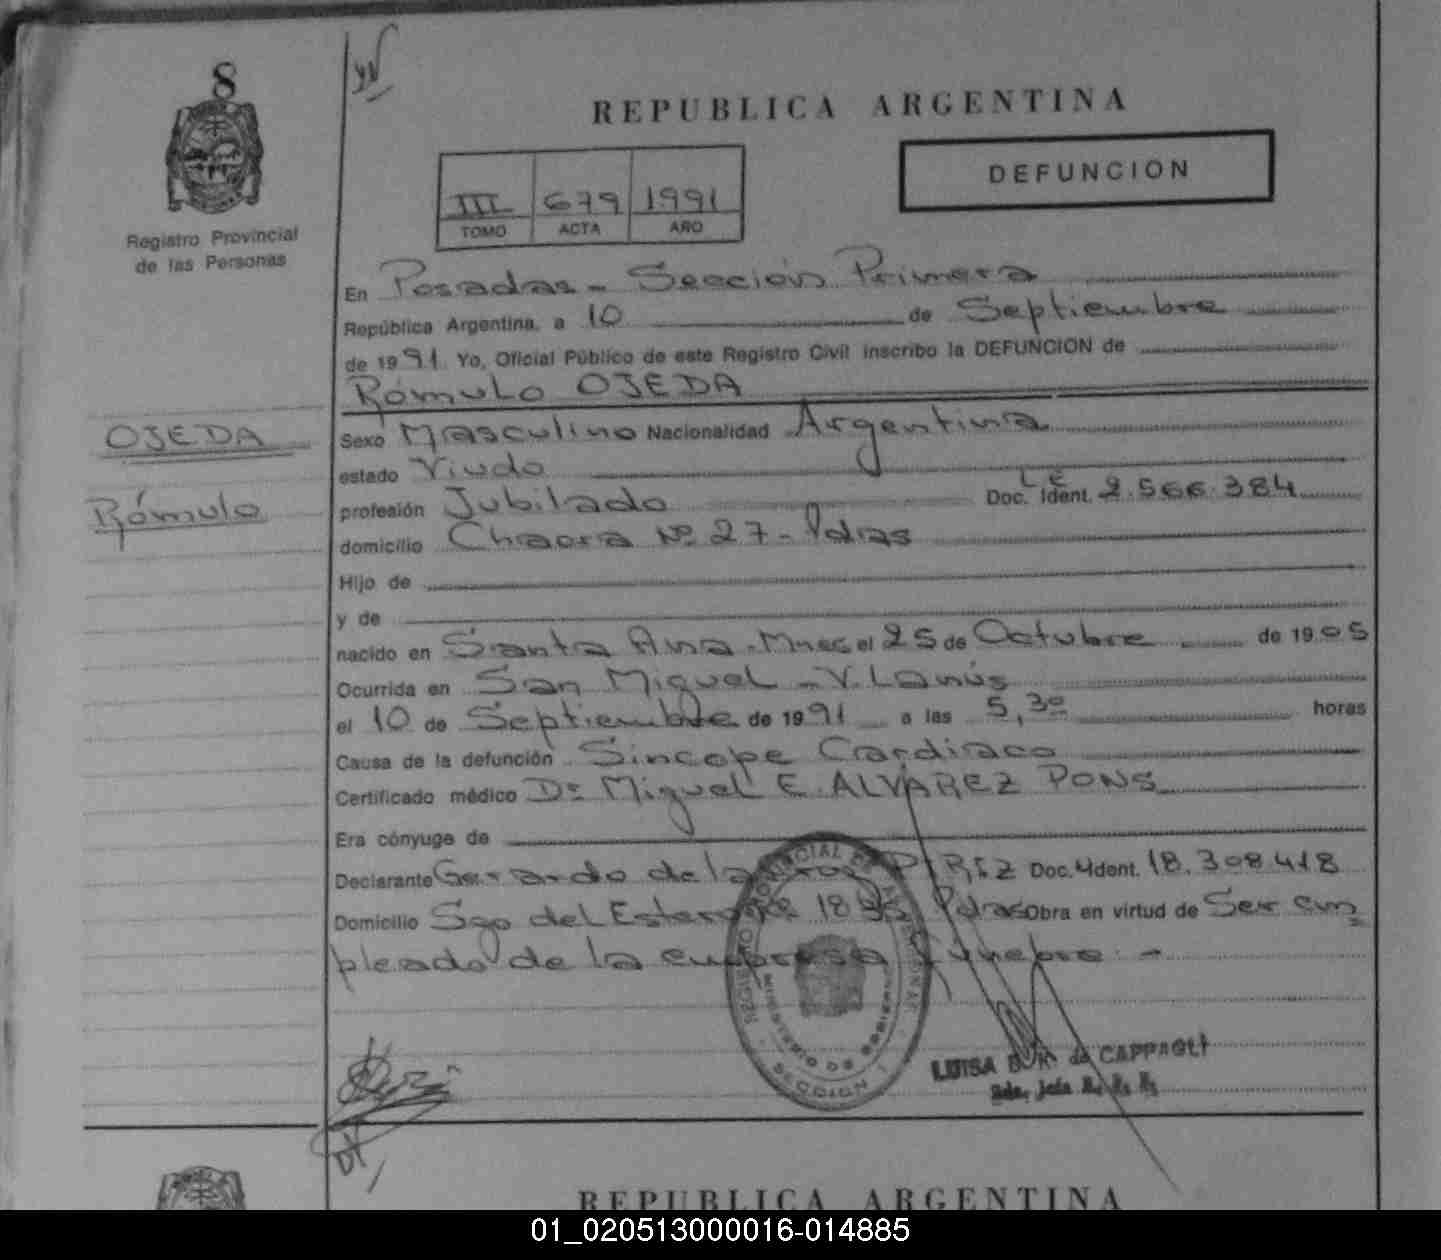 8
REPUBLICA ARGENTINA
DEFUNCION
III 679 1991
TOMO ACTA AÑO
Registro Provincial
de las Personas
En Posadas - Sección Primera
República Argentina, a 10 de Septiembre
de 1991. Yo, Oficial Público de este Registro Civil inscribo la DEFUNCION de
Rómulo OJEDA
OJEDA
Rómulo
Sexo Masculino Nacionalidad Argentina
estado Viudo
profesión Jubilado Doc. Ident. L E 2.566.384
domicilio Chacra Nº 27 - Pdas
Hijo de
y de
nacido en Santa Ana - Mnes el 25 de Octubre de 1905
Ocurrida en San Miguel - V. Lanús
el 10 de Septiembre de 1991 a las 5,30 horas
Causa de la defunción Sincope Cardiaco
Certificado médico Dr Miguel E. ALVAREZ PONS
Era cónyuge de
Declarante Gerardo de la PIRIZ Doc. Ident. 18.308.418
Domicilio Sgo del Estero Nº Pdas Obra en virtud de Ser em
pleado de la empresa fúnebre. -
MINISTERIO DE GOBIERNO
SECCION 1
LUISA de CAPPAGLI
REPUBLICA ARGENTINA
01_020513000016-014885